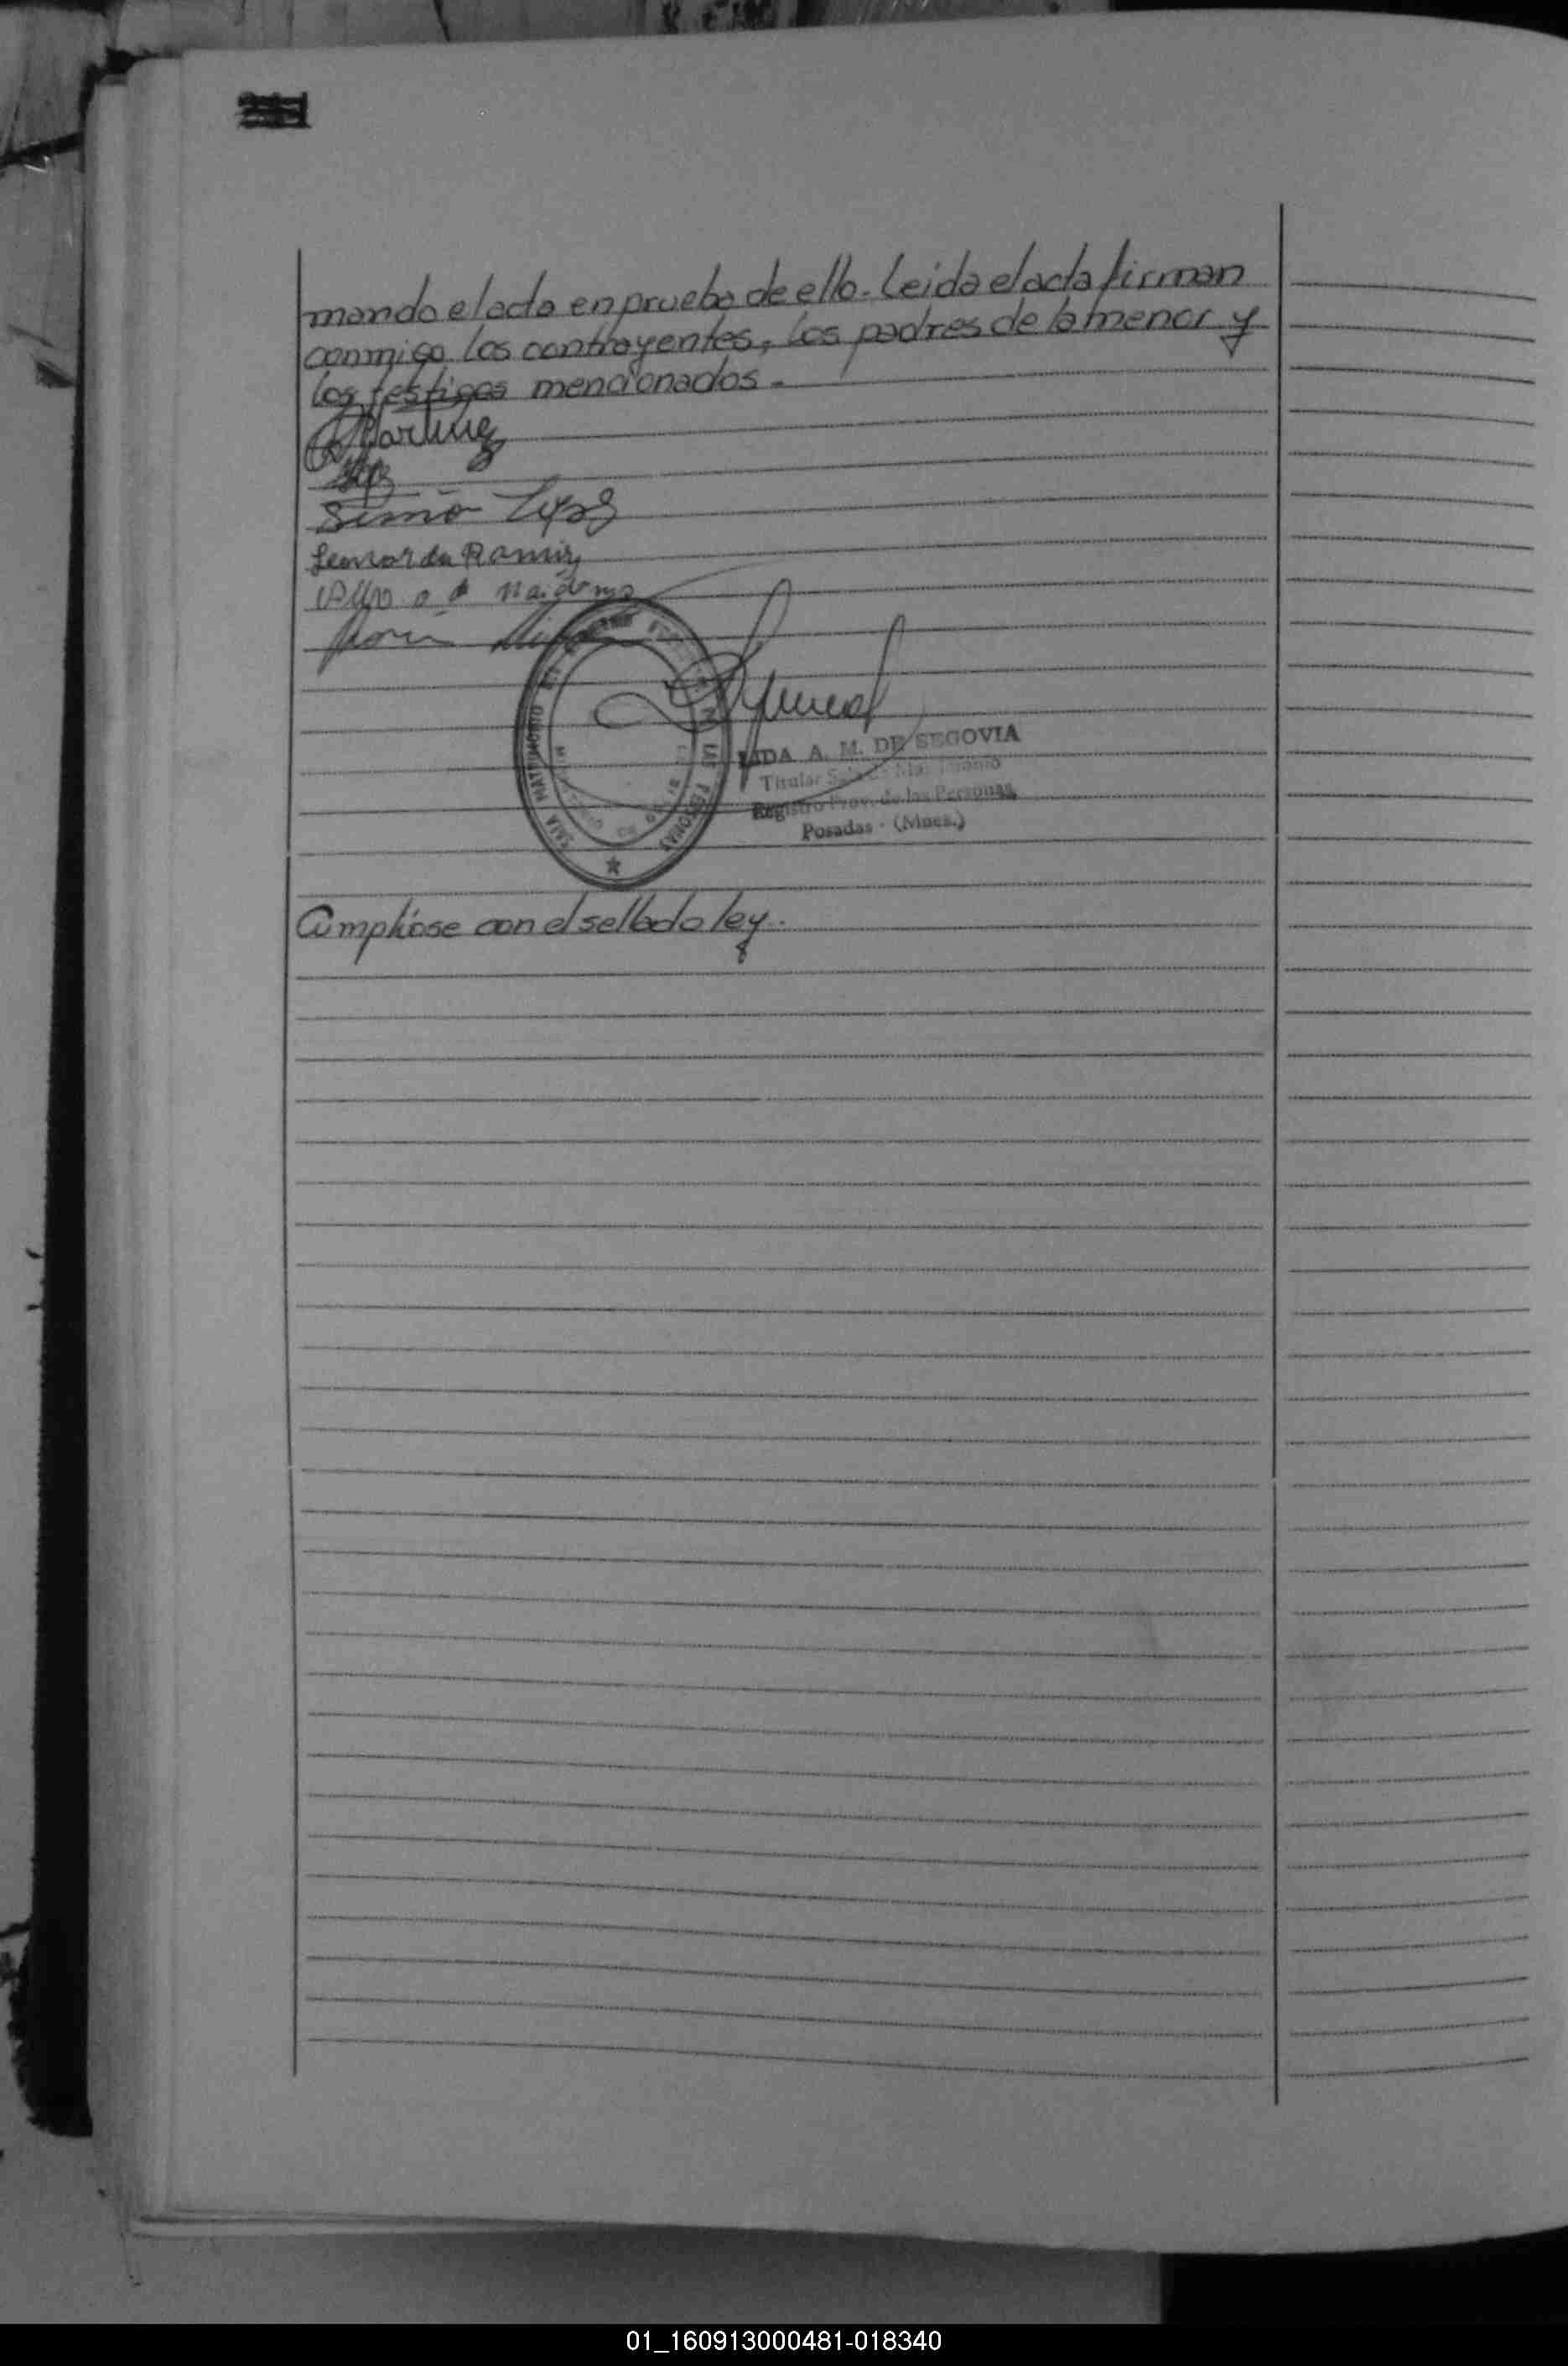 mando el acta en prueba de ello. Leida el acta firman
conmigo los contrayentes, los padres de la menor y
los testigos mencionados.
Martinez
Leonarda Ramirez
SALA MATRIMONIO
LIDA A. M. DE SEGOVIA
Titular Sala de Matrimonio
Registro Prov. de las Personas
Posadas - (Mnes.)
Cumplióse con el sellado ley.
01_160913000481-018340